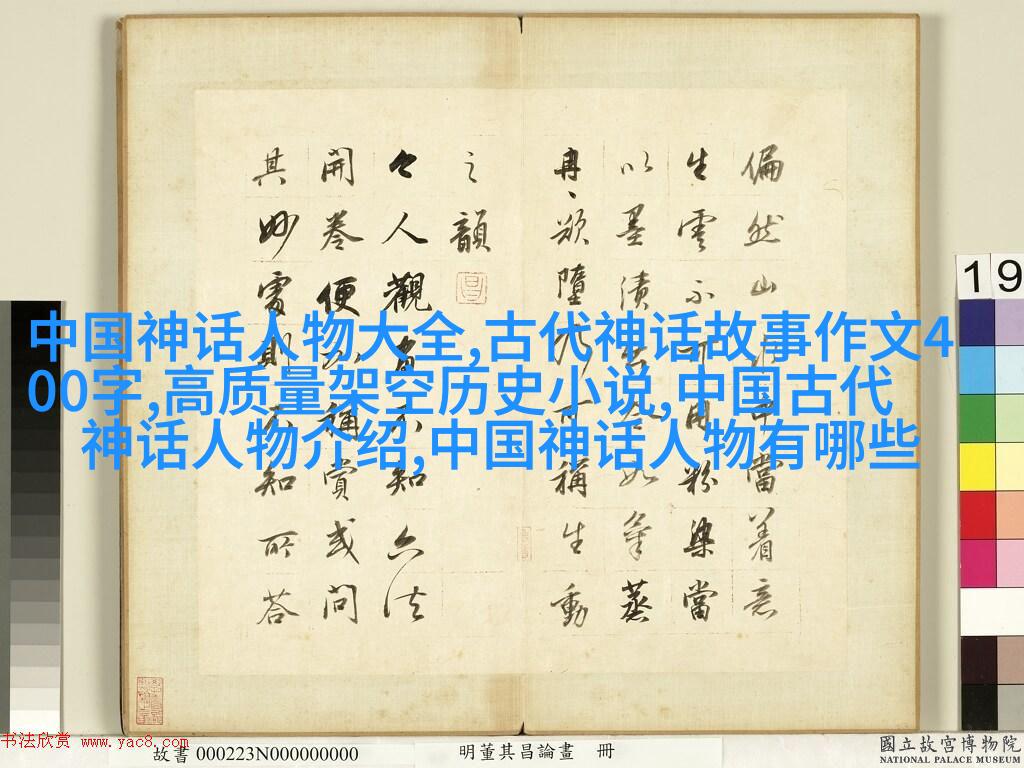 中国神话人物大全,古代神话故事作文4
00字,高质量架空历史小说,中国古代
神话人物介绍,中国神话人物有哪些
偏然山水中當着意
生雲不可用粉染當
以墨漬出令如氣蒸
冉冉欲墮乃可稱生動
之韻
今人觀畫不知六法
開卷便加稱賞或問
其妙處則不知所答
19
书法欣赏 www.yac8.com
故書 000223N000000000
明董其昌論畫 冊
國立故宮博物院
NATIONAL PALACE MUSEUM